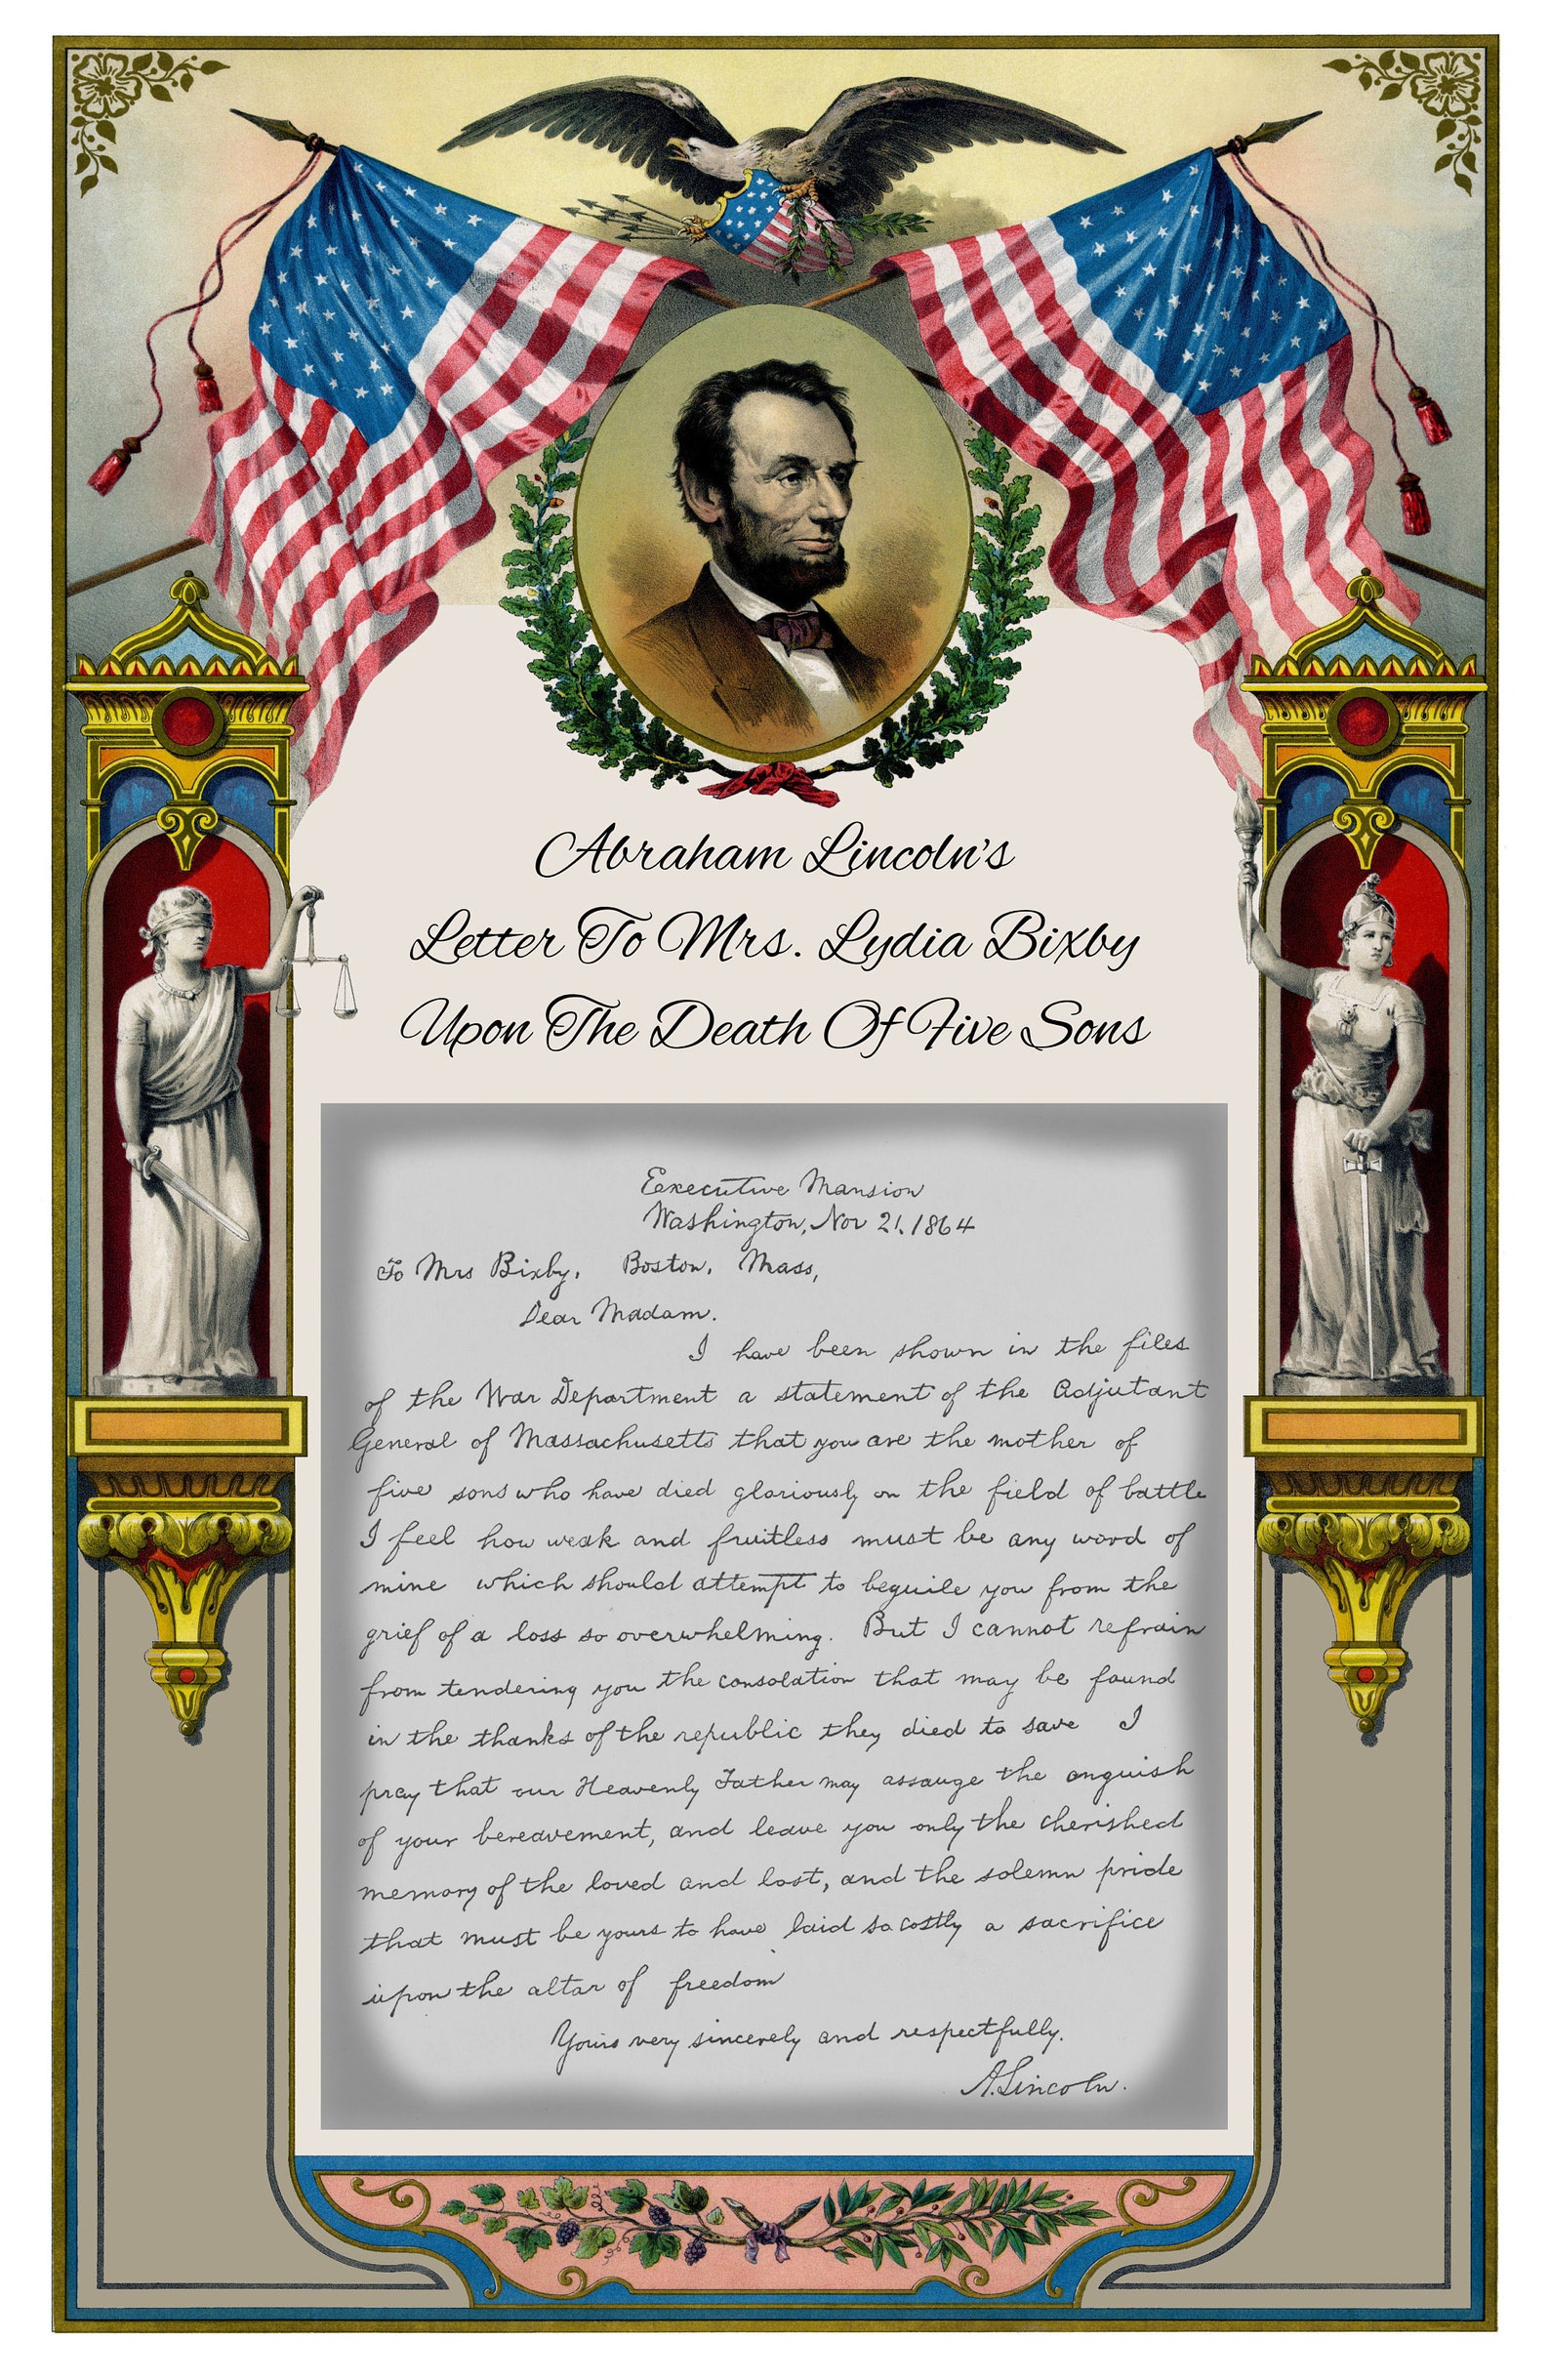 Abraham Lincoln's
Letter To Mrs. Lydia Bixby
Upon The Death Of Five Sons
Executive Mansion
Washington, Nov 21, 1864
To Mrs Bixby, Boston, Mass,
Dear Madam.
I have been shown in the files
of the War Department a statement of the Adjutant
General of Massachusetts that you are the mother of
five sons who have died gloriously on the field of battle
I feel how weak and fruitless must be any word of
mine which should attempt to beguile you from the
grief of a loss so overwhelming. But I cannot refrain
from tendering you the consolation that may be found
in the thanks of the republic they died to save I
pray that our Heavenly Father may assauge the anguish
of your bereavement, and leave you only the cherished
memory of the loved and lost, and the solemn pride
that must be yours to have laid so costly a sacrifice
upon the altar of freedom
Yours very sincerely and respectfully.
A. Lincoln.